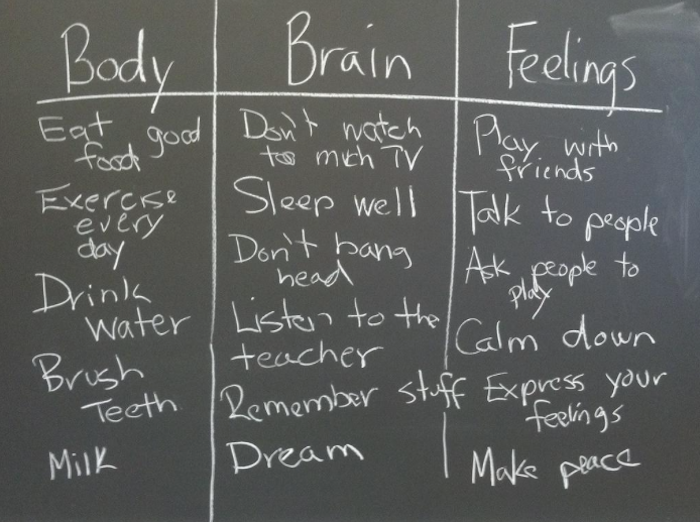 Body
Eat good
food
Exercise
every
day
Drink
Water
Brush
Teeth
Milk
Brain
Don't watch
too much TV
Sleep well
Don't bang
head
Listen to the
teacher
Remember stuff
Dream
Feelings
Play with
friends
Talk to people
Ask people to
play
Calm down
Express your
feelings
Make peace